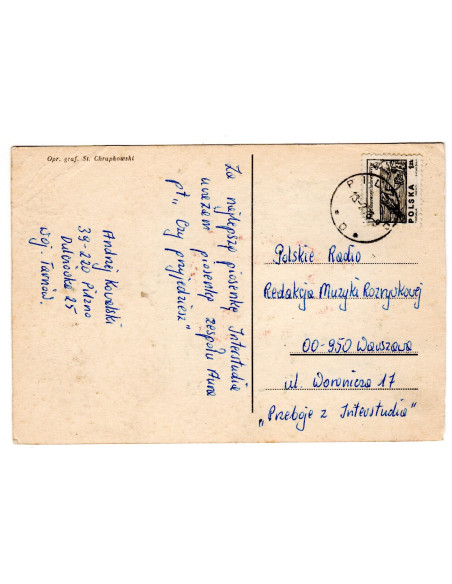 Opr. graf. St. Chrapkowski
Za najlepszą piosenkę Interstudia
uważam piosenkę zespołu Aura
pt. „Czy przyjedziesz"
Andrzej Kowalski
39-220 Pilzno
25
woj. Tarnów
POLSKA
Polskie Radio
Redakcja Muzyki Rozrywkowej
00-950 Warszawa
ul. Woronicza 17
„Przeboje z Interstudia"